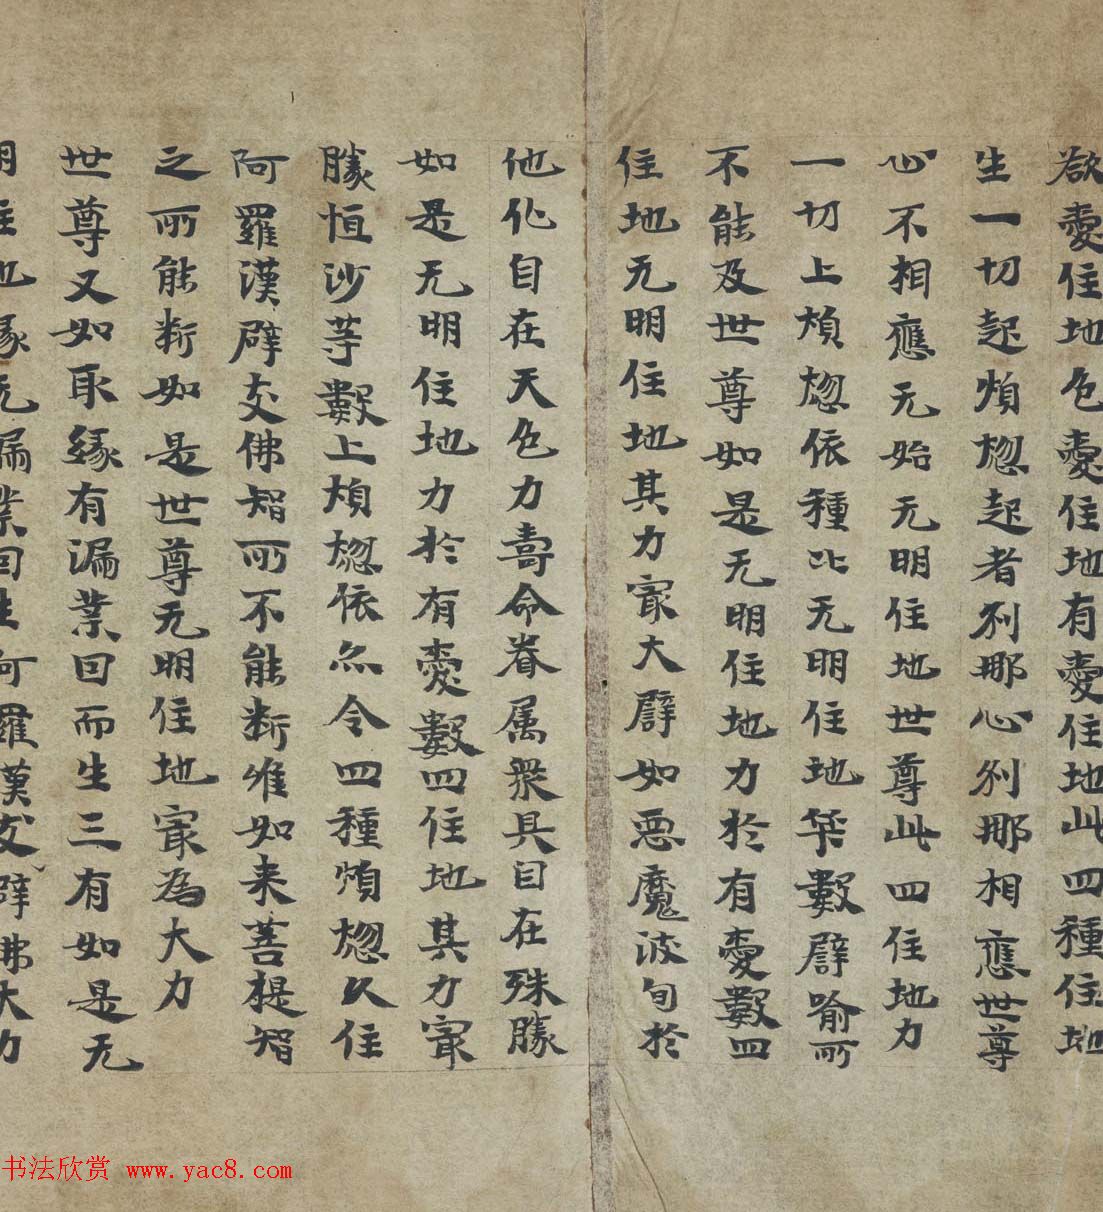 欲愛住地色愛住地有愛住地此四種住地
生一切起煩惱起者刹那心刹那相應世尊
心不相應无始无明住地世尊此四住地力
一切上煩惱依種比无明住地筭數譬喻所
不能及世尊如是无明住地力於有愛數四
住地无明住地其力㝡大譬如惡魔波旬於
他化自在天色力壽命眷属衆具自在殊勝
如是无明住地力於有愛數四住地其力㝡
勝恒沙等數上煩惱依亦令四種煩惱久住
阿羅漢辟支佛智所不能斷唯如来菩提智
之所能斷如是世尊无明住地㝡為大力
世尊又如取緣有漏業因而生三有如是无
明住地緣无漏業因生阿羅漢支辟佛大力
书法欣赏 www.yac8.com